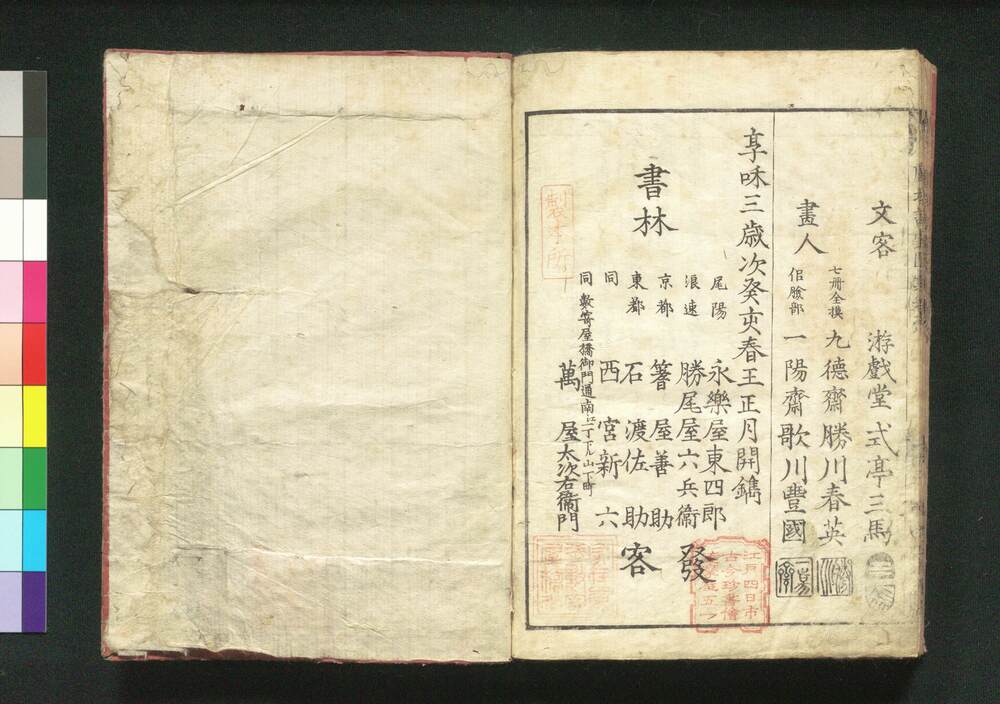 文客 游戯堂 式亭三馬
畫人 七冊全摸 九德齋勝川春英
倌臉部 一陽齋歌川豐國
享咊三歳次癸亥春王正月開鐫
書林
尾陽 永樂屋東四郎
浪速 勝尾屋六兵衞
京都 簣屋善助
東都 石渡佐助
同 西宮新六
同 數寄屋橋御門通南江二丁下ル山下町
萬屋太次右衞門
發客
製本所
江戸四日市
古今珍書儈